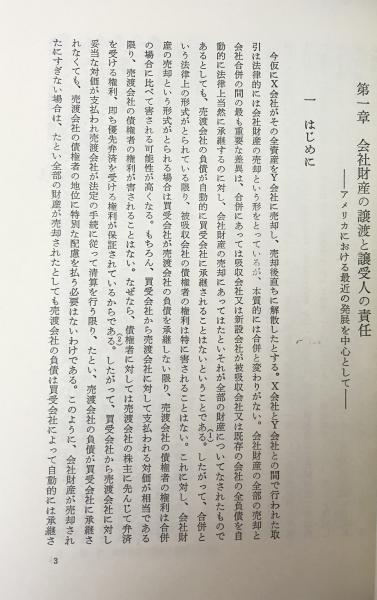 第一章　会社財産の譲渡と譲受人の責任
――アメリカにおける最近の発展を中心として――
一　はじめに
今仮にX会社がその全資産をY会社に売却し、売却後直ちに解散したとする。X会社とY会社との間で行われた取
引は法律的には会社財産の売却という形をとっているが、本質的には合併と変わりがない。会社財産の全部の売却と
会社合併の間の最も重要な差異は、合併にあっては吸収会社又は新設会社が被吸収会社又は既存の会社の全負債を自
動的に法律上当然に承継するのに対し、会社財産の売却にあってはたといそれが全部の財産についてなされたもので
あるとしても、売渡会社の負債が自動的に買受会社に承継されることはないということである。(1)したがって、合併と
いう法律上の形式がとられている限り、被吸収会社の債権者の権利は特に害されることはない。これに対し、会社財
産の売却という形式がとられる場合は買受会社が売渡会社の負債を承継しない限り、売渡会社の債権者の権利は合併
の場合に比べて害される可能性が高くなる。もちろん、買受会社から売渡会社に対して支払われる対価が相当である
限り、売渡会社の債権者の権利が害されることはない。なぜなら、債権者に対しては売渡会社の株主に先んじて弁済
を受ける権利、即ち優先弁済を受ける権利が保証されているからである。(2)したがって、買受会社から売渡会社に対し
妥当な対価が支払われ売渡会社が法定の手続に従って清算を行う限り、たとい、売渡会社の負債が買受会社に承継さ
れなくても、売渡会社の債権者の地位に特別な配慮を払う必要はないわけである。このように、会社財産が売却され
たにすぎない場合は、たとい全部の財産が売却されたとしても売渡会社の負債は買受会社によって自動的には承継さ
3